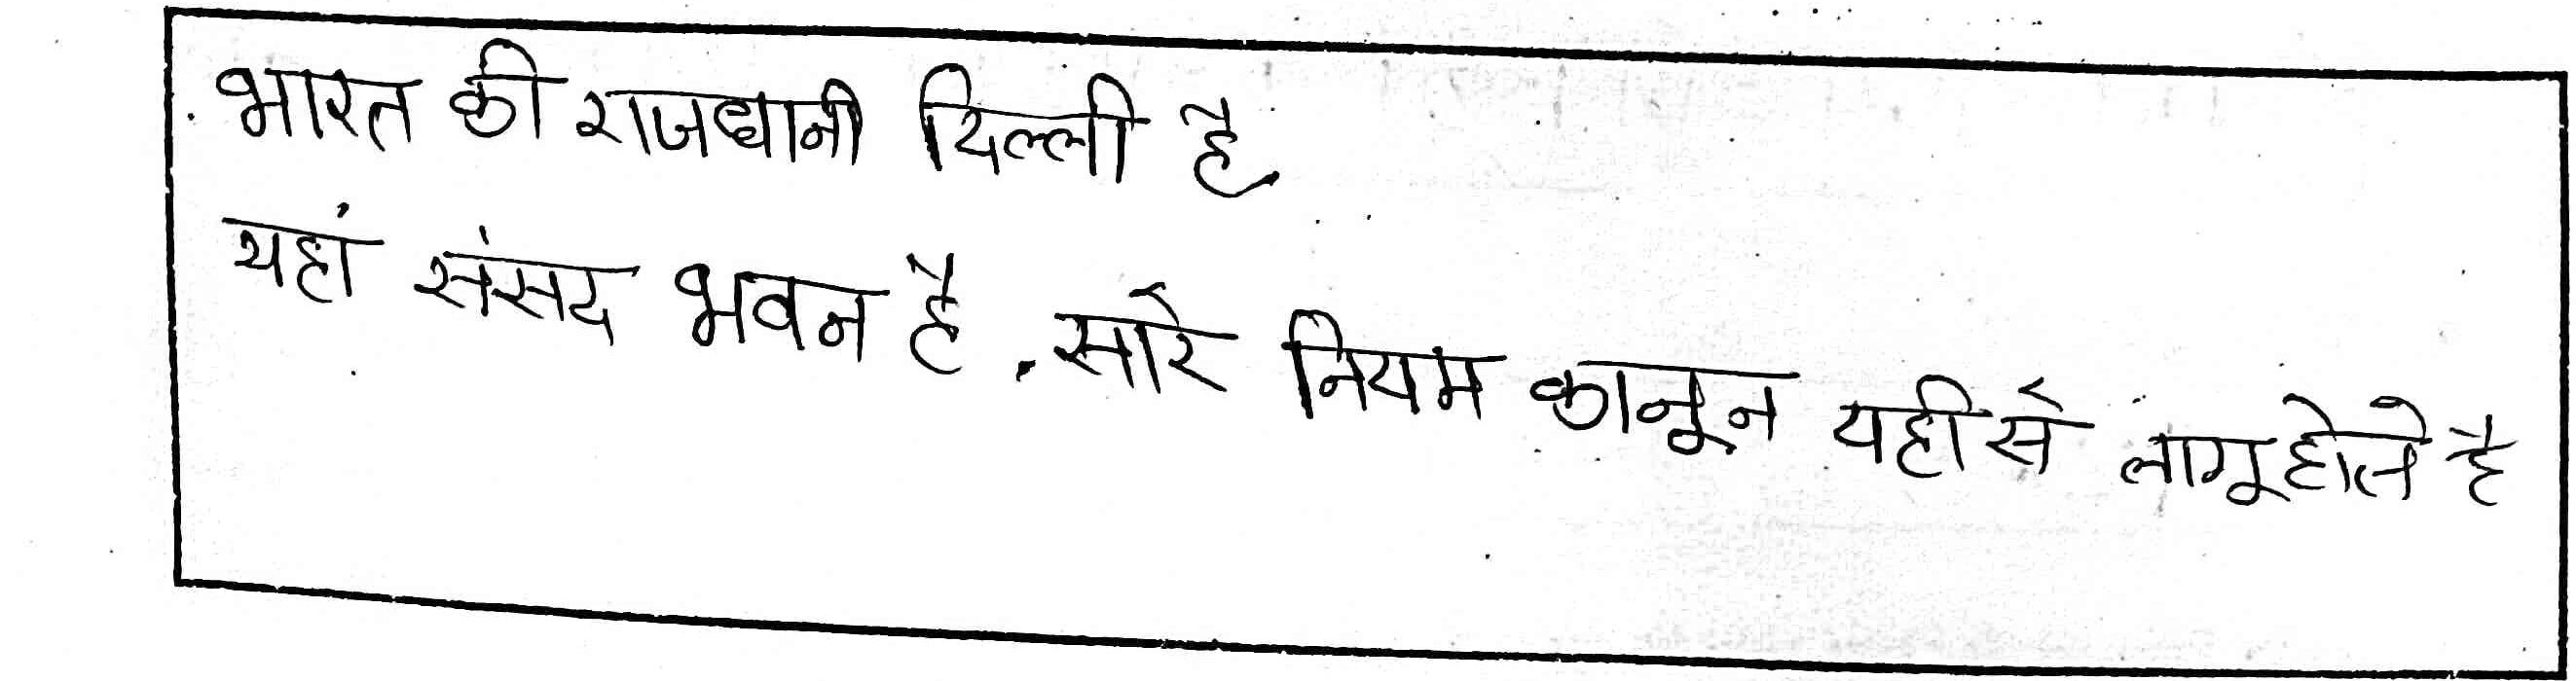 भारत की राजधानी दिल्ली है
यहां संसद भवन है, सारे नियम कानून यही से लागू होते है